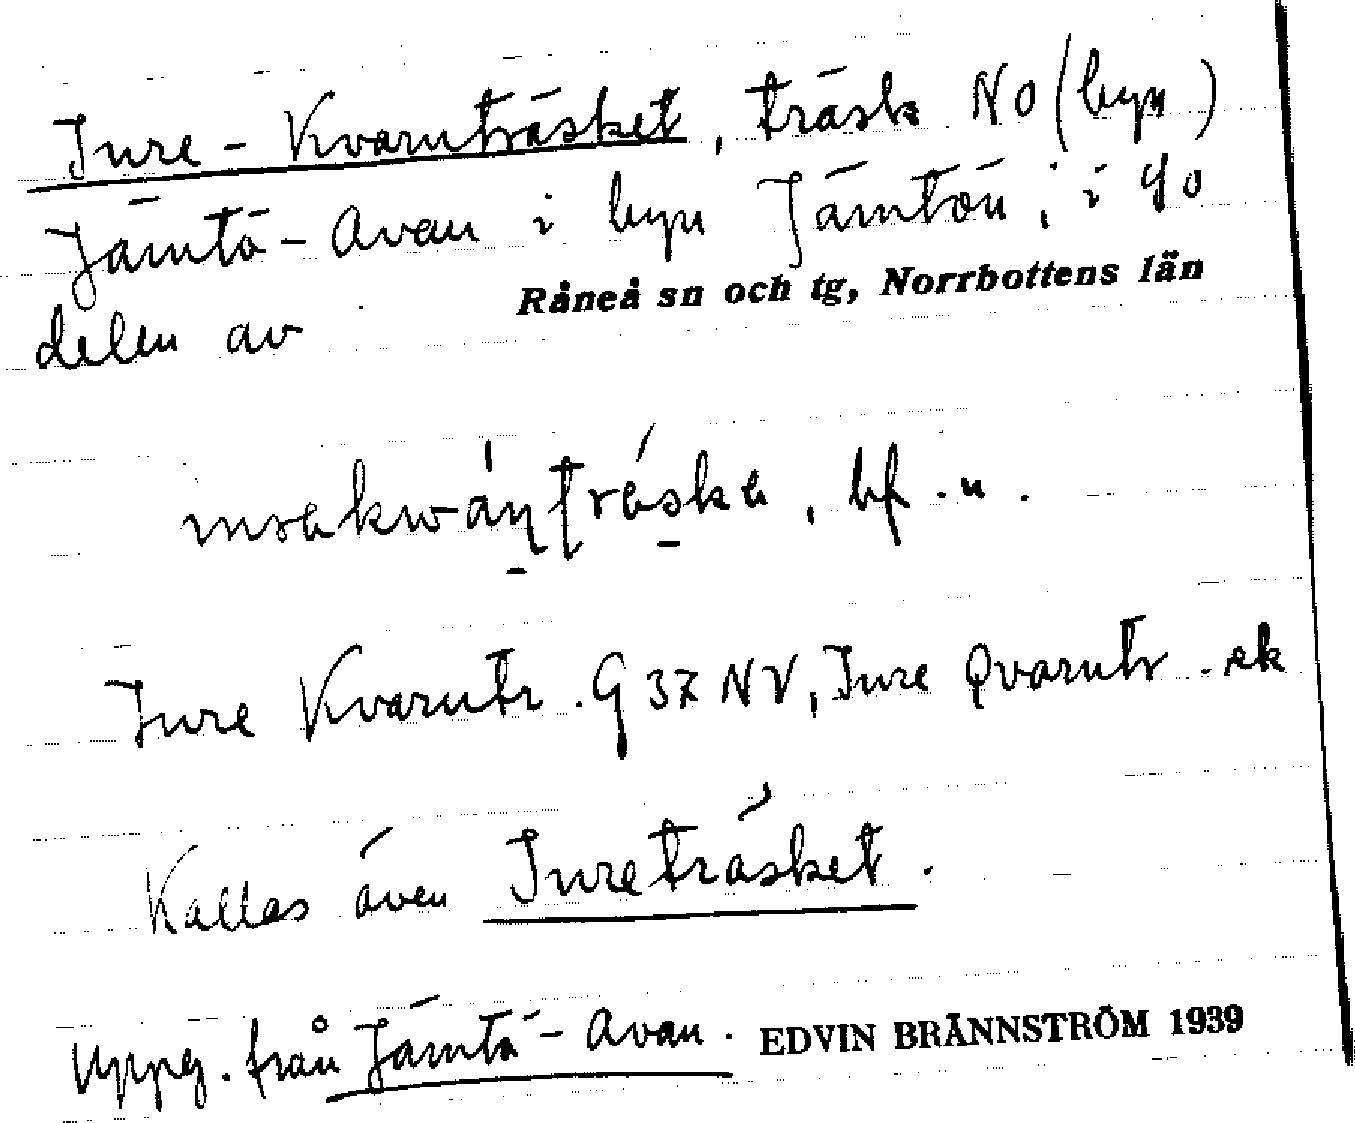 Inre-Kvarnträsket, träsk NO (byn)
Jämtö-Avan i byn Jämtön, i SO
delen av Råneå sn och tg, Norrbottens län
bf.n.
Inre Kvarntr. G 37 NV, Inre Qvarntr. ek
Kallas även Inreträsket.
Uppg. från Jämtö-Avan. EDVIN BRÄNNSTRÖM 1939